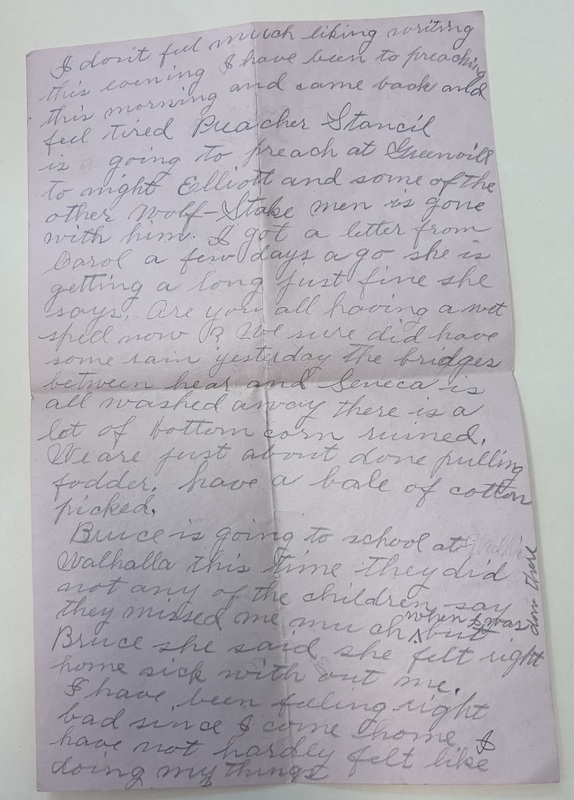 I don't feel much liking writing
this evening I have been to preaching
this morning and came back and
feel tired Preacher Stancil
is going to preach at Greenvill
to night Elliott and some of the
other Wolf-Stake men is gone
with him. I got a letter from
Carol a few days a go she is
getting a long just fine she
says. Are you all having a wet
spell now? We sure did have
some rain yesterday the bridges
between hear and Seneca is
all washed away there is a
lot of bottom corn ruined.
We are just about done pulling
fodder. have a bale of cotton
picked.
Bruce is going to school at
Walhalla this time they did
not any of the children say
they missed me much when I was but
Bruce she said she felt right
home sick with out me.
I have been feeling right
bad since I come home I
have not hardly felt like
doing my things
down there